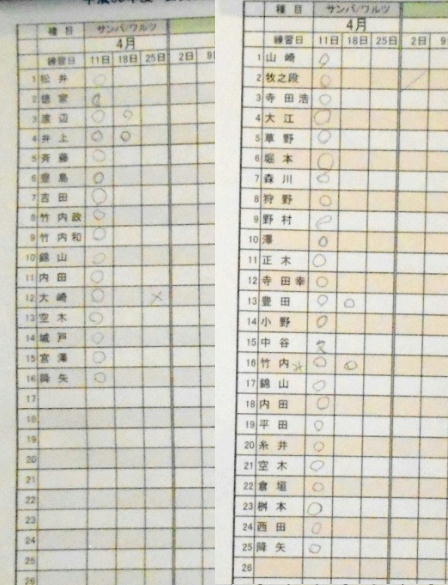 種目 サンバ/ワルツ
4月
練習日 11日 18日 25日 2日
1 松井 ○
2 徳家 ○
3 渡辺 ○ ○
4 井上 ○ ○
5 斉藤 ○
6 豊島 ○
7 吉田 ○
8 竹内政 ○
9 竹内和 ○
10 錦山 ○
11 内田 ○
12 大崎 ○ ×
13 空木 ○
14 城戸 ○
15 宮澤 ○
16 降矢 ○
17
18
19
20
21
22
23
24
25
26
種目 サンバ/ワルツ
4月
練習日 11日 18日 25日 2日 9日
1 山崎 ○
2 牧之段 ○
3 寺田浩 ○
4 大江 ○
5 草野 ○
6 堀本 ○
7 森川 ○
8 狩野 ○
9 野村 ○
10 澤 ○
11 正木 ○
12 寺田幸 ○
13 豊田 ○ ○
14 小野 ○
15 中谷
16 竹内 × ○ ○
17 錦山 ○
18 内田 ○
19 平田 ○
20 糸井 ○
21 空木 ○
22 倉垣 ○
23 桝本 ○
24 西田 ○
25 降矢 ○
26